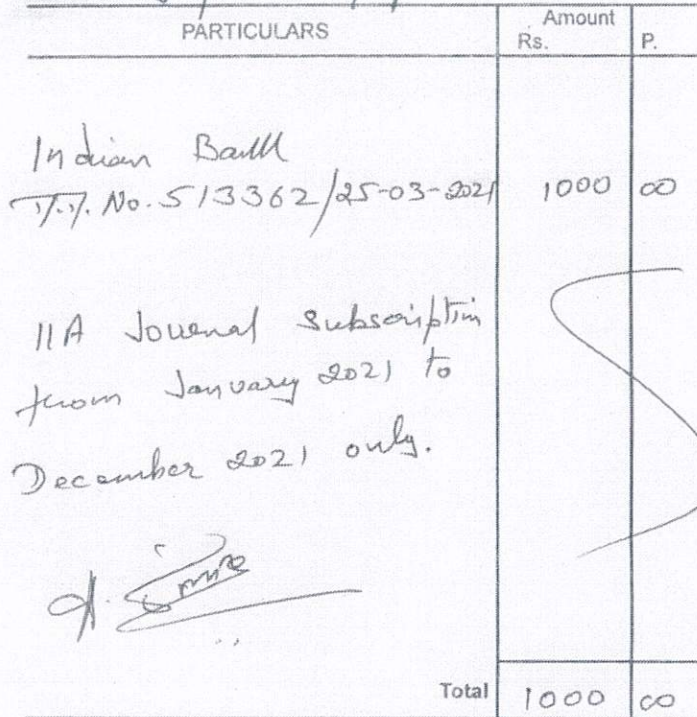 PARTICULARS Amount
Rs. P.
Indian Bank
No. 513362/25-03-2021 1000 00
IIA Journal Subscription
from January 2021 to
December 2021 only.
Total 1000 00